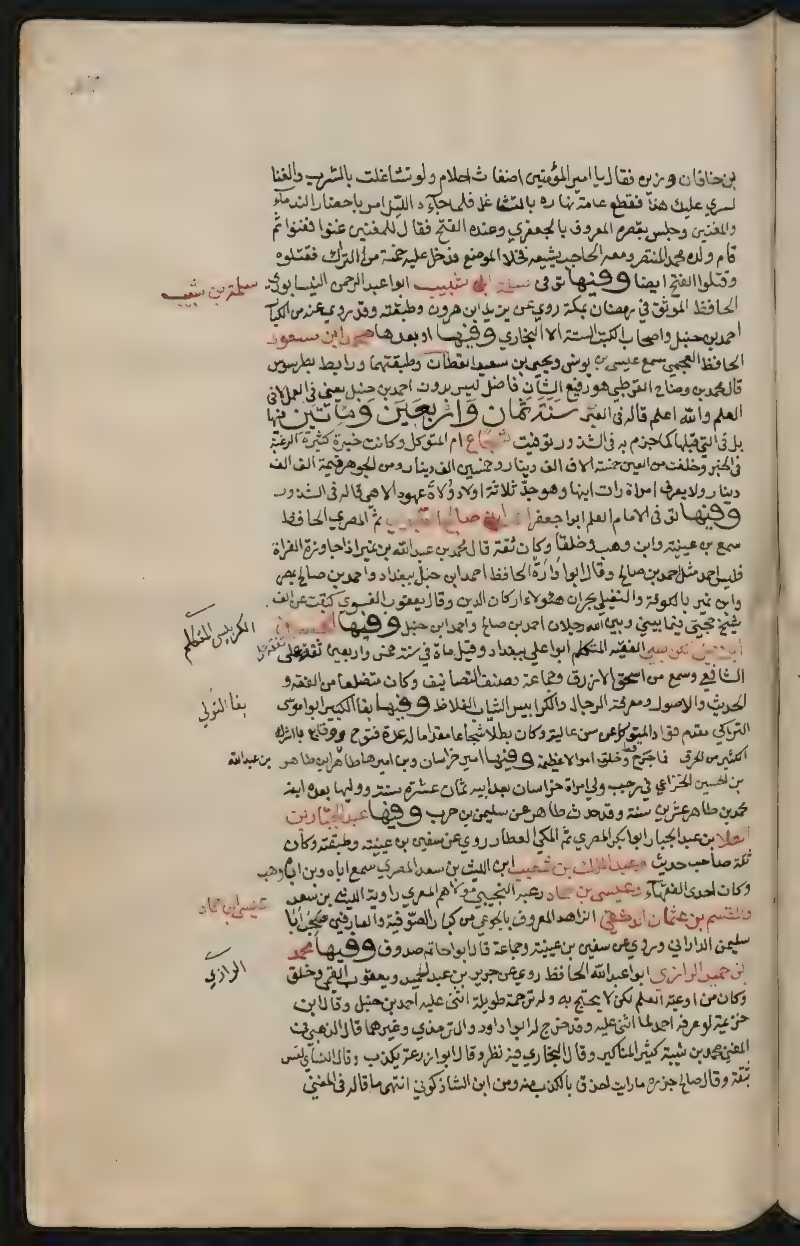 بن خاقان وزيره فقال يا امير المؤمنين اضغاث احلام ولو تشاغلت بالشرب والغنا
لسري عليك هذا فقطع عامة نهاره بالتشاغل فلما جاء الليل امر باحضار الندماء
والمغنين وجلس بقصره المعروف بالجعفري وعنده الفتح فقال للمغنين غنوا فغنوا ثم
قام ولده محمد المنتصر ومعه الحاجب يشيعه فخلا الموضع فدخل عليه خمسة من الترك فقتلوه
وقتلوا الفتح ايضا وفيها توفى سلمة بن شبيب ابو عبد الرحمن النيسابوري
سلمة بن شبيب
الحافظ الموثق في رمضان بمكة روي عن يزيد ابن هرون وطبقته وقد روي عنه من الكبار
احمد بن حنبل واصحاب الكتب الستة الا البخاري وفيها او بعدها محمد ابن مسعود
الحافظ العجمي سمع عيسى بن يونس ويحيى بن سعيد القطان وطبقتهما ورابط بطرسوس
قال محمد بن وضاح القرطبي هو رفيع الشان فاضل ليس بدون احمد بن حنبل يعنى في العمل لا فى
العلم والله اعلم قاله فى العبر سنة ثمان واربعين ومائتين فيها
بل فى التي قبلها كما جزم به فى الشذور توفيت شجاع ام المتوكل وكانت خيرة كثيرة الرغبة
فى الخير وخلفت من العين خمسة الاف الف دينار وخمسين الف دينار ومن الجوهر قيمة الف الف
دينار ولا يعرف امراة رات ابنها وهو جد ثلاثة اولاد ولاة عهود الا هى قاله فى الشذور
وفيها توفى الامام العلم ابو جعفر احمد ابن صالح ثم المصري الحافظ
سمع بن عيينة وابن وهب وخلقا وكان ثقة قال محمد بن عبد الله بن نمير اذا جاوزت الفراة
فليس احد مثل احمد بن صالح وقال ابن وارة الحافظ احمد ابن حنبل ببغداد واحمد بن صالح بمصر
وابن نمير بالكوفة والنفيلي بحران هؤلاء اركان الدين وقال يعقوب الفسوي كتبت عن الف
شيخ حجتي فيما بيني وبين الله رجلان احمد بن صالح واحمد ابن حنبل وفيها الحسين
الكرابيسي المتكلم
الفقيه المتكلم ابو علي ببغداد وقيل مات في سنة خمس واربعين تفقه على
الشافعي وسمع من اسحق الازرق وجماعة وصنف التصانيف وكان متضلعا من الفقه و
الحديث والاصول ومعرفة الرجال والكرابيس الثياب الغلاظ وفيها بغا الكبير ابو موسى
بغا التركي
التركي مقدم قواد المتوكل عن سن عالية وكان بطلا شجاعا مقداما له عدة فتوح ووقايع باشر
الكثير من الحرق فما جرح قط وخلف اموالا عظيمة وفيها امير خراسان وبن اميرها طاهر ابن طاهر بن عبد الله
بن الحسين الخزاعي في رجب ولي امرة خراسان بعد ابيه ثمان عشرة سنة ووليها بعده ابنه
محمد بن طاهر عشرين سنة وقد حدث طاهر عن سليمن بن حرب وفيها عبد الجبار بن
العلا بن عبد الجبار ابو بكر المصري ثم المكي العطار روي عن سفين بن عيينة وطبقته وكان
ثقة صاحب حديث وعبد الملك بن شعيب ابن الليث بن سعد المصري سمع اباه وبن وهب
وكان احد الفقهاء وعيسى بن حماد زغبة التجيبي مولاهم المصري راوية الليث بن سعد
عيسى ابن حماد
والقسم بن عثمان الدمشقي الزاهد المعروف بالجوعي من كبار الصوفية والعارفين صحب ابا
سليمن الداراني وروي عن سفين بن عيينة وجماعة قال ابو حاتم صدوق وفيها محمد
بن حميد الرازي ابو عبد الله الحافظ روي عن جرير بن عبد الحميد ويعقوب القمي وخلق
الرازي
وكان من اوعية العلم لكن لا يحتج به وله ترجمة طويلة اثنى عليه احمد بن حنبل وقال ابن
خزيمة لو عرفه احمد لما اثنى عليه وقد خرج له ابو داود والترمذي وغيرهما قال الذهبي في
المغني بن شيبة كثير المناكير وقال البخاري فيه نظر وقال ابو زرعة يكذب وقال النسائي ليس
بثقة وقال صالح جزرة ما رايت احذق بالكذب منه ومن ابن الشاذكوني انتهى ما قاله فى المغني